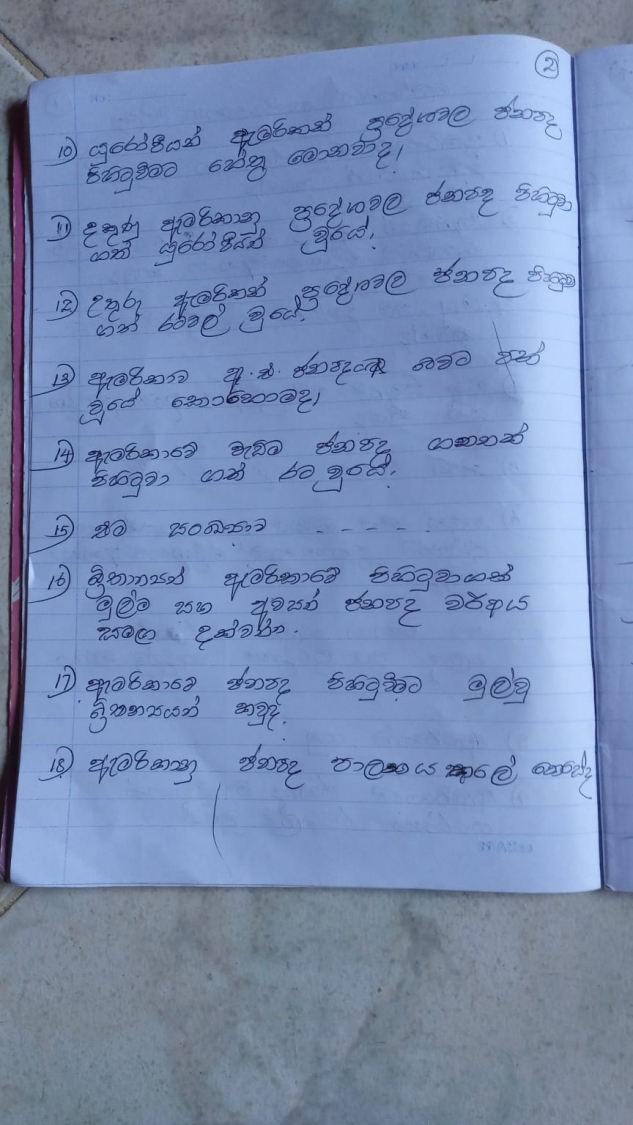 2
10) යුරෝපීයන් ඇමරිකන් ප්‍රදේශවල ජනපද
පිහිටුවීමට හේතු මොනවාද,
11) දකුණු ඇමරිකානු ප්‍රදේශවල ජනපද පිහිටුවා
ගත් යුරෝපීයන් වූයේ.
12) උතුරු ඇමරිකන් ප්‍රදේශවල ජනපද පිහිටුවා
ගත් රටවල් වූයේ.
13) ඇමරිකාව ඇ.එ. ජනපදයක් බවට පත්
වූයේ කොහොමද,
14) ඇමරිකාවේ වැඩිම ජනපද ගනනක්
පිහිටුවා ගත් රට වූයේ.
15) එම සංඛ්‍යාව - - - - .
16) බ්‍රිතාන්‍යන් ඇමරිකාවේ පිහිටුවාගත්
මුල්ම සහ අවසන් ජනපද වර්ෂය
සමග දක්වන්න.
17) ඇමරිකාවේ ජනපද පිහිටුවීමට මුල්වූ
බ්‍රිතාන්‍යයන් කවුද.
18) ඇමරිකානු ජනපද පාලනය කලේ කෙසේද